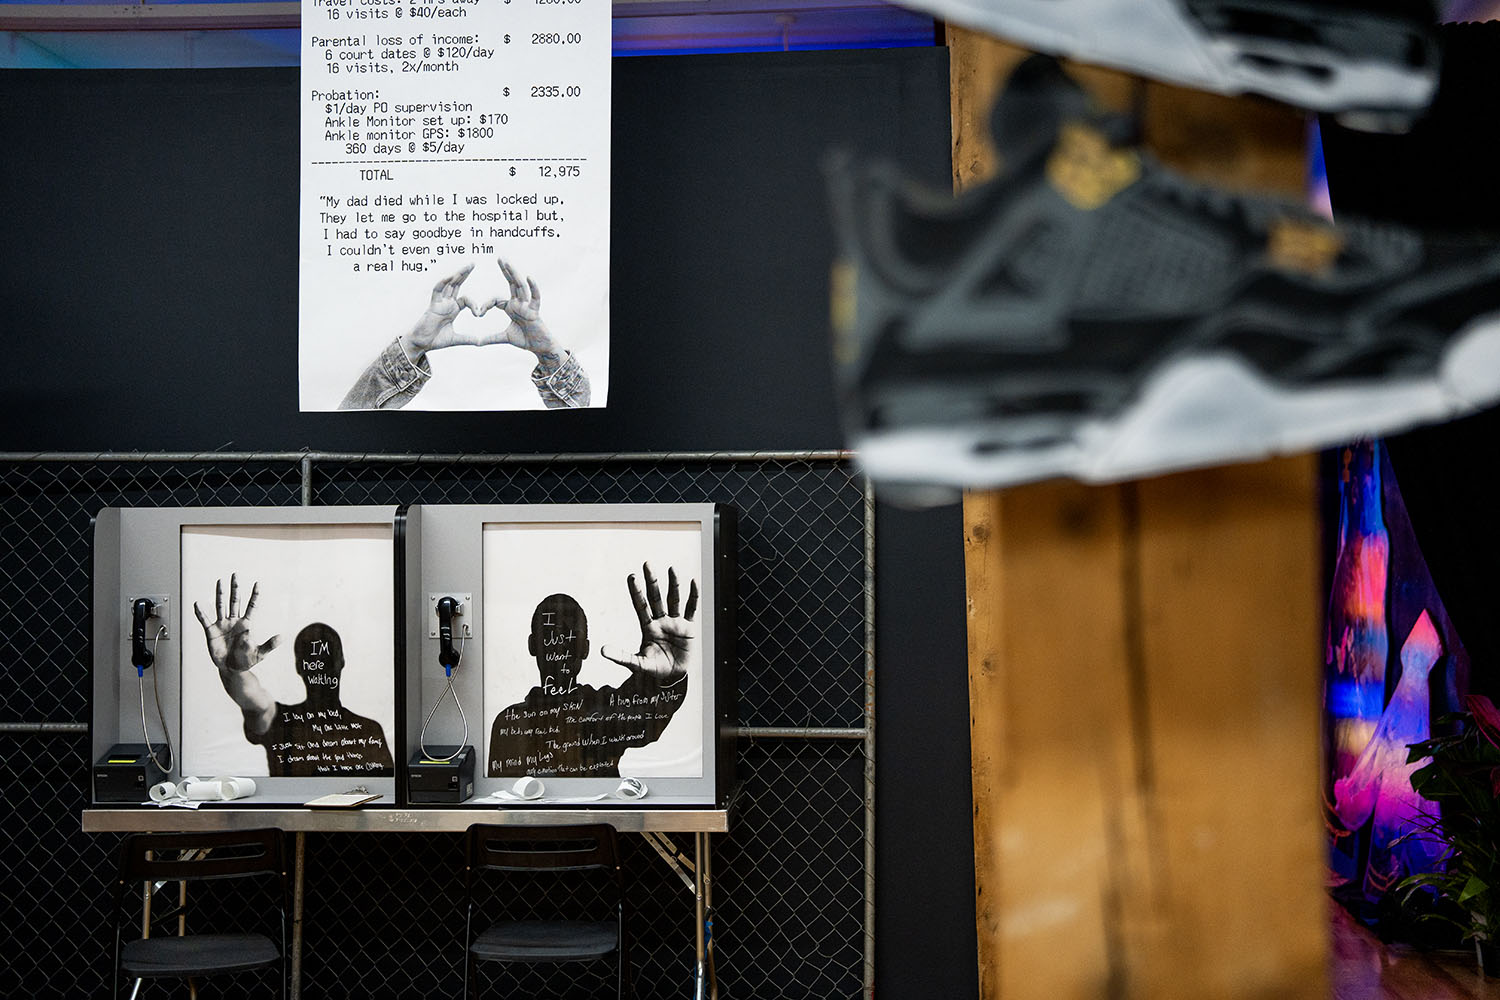 Travel costs: 2 hrs away $ 1280.00
16 visits @ $40/each
Parental loss of income: $ 2880.00
6 court dates @ $120/day
16 visits, 2x/month
Probation: $ 2335.00
$1/day PO supervision
Ankle Monitor set up: $170
Ankle monitor GPS: $1800
360 days @ $5/day
TOTAL $ 12,975
“My dad died while I was locked up.
They let me go to the hospital but,
I had to say goodbye in handcuffs.
I couldn’t even give him
a real hug.”
I'M
here
waiting
I lay on my bed,
I just sit and dream about my family
I dream about the good things
that I hope are coming
I
Just
want
to
feel
the sun on my skin
A hug from my sister
The comfort of the people I love
my bed, my real bed
The grass when I walk around
my mind my legs
any emotion that can be expressed
EPSON
EPSON